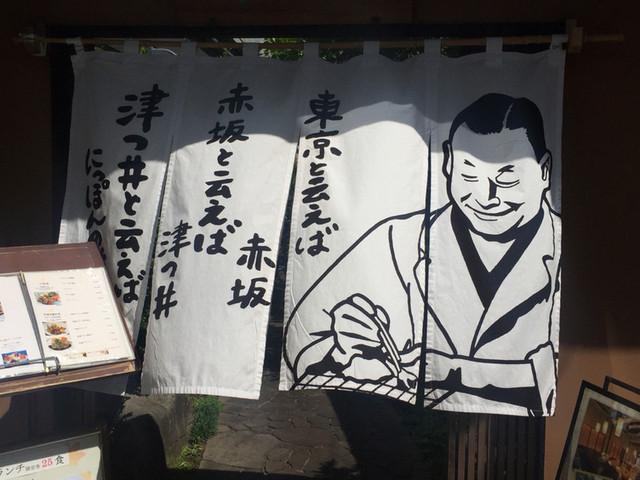 東京と云えば
赤坂
赤坂と云えば
津つ井
津つ井と云えば
にっぽんの
ランチ
25食